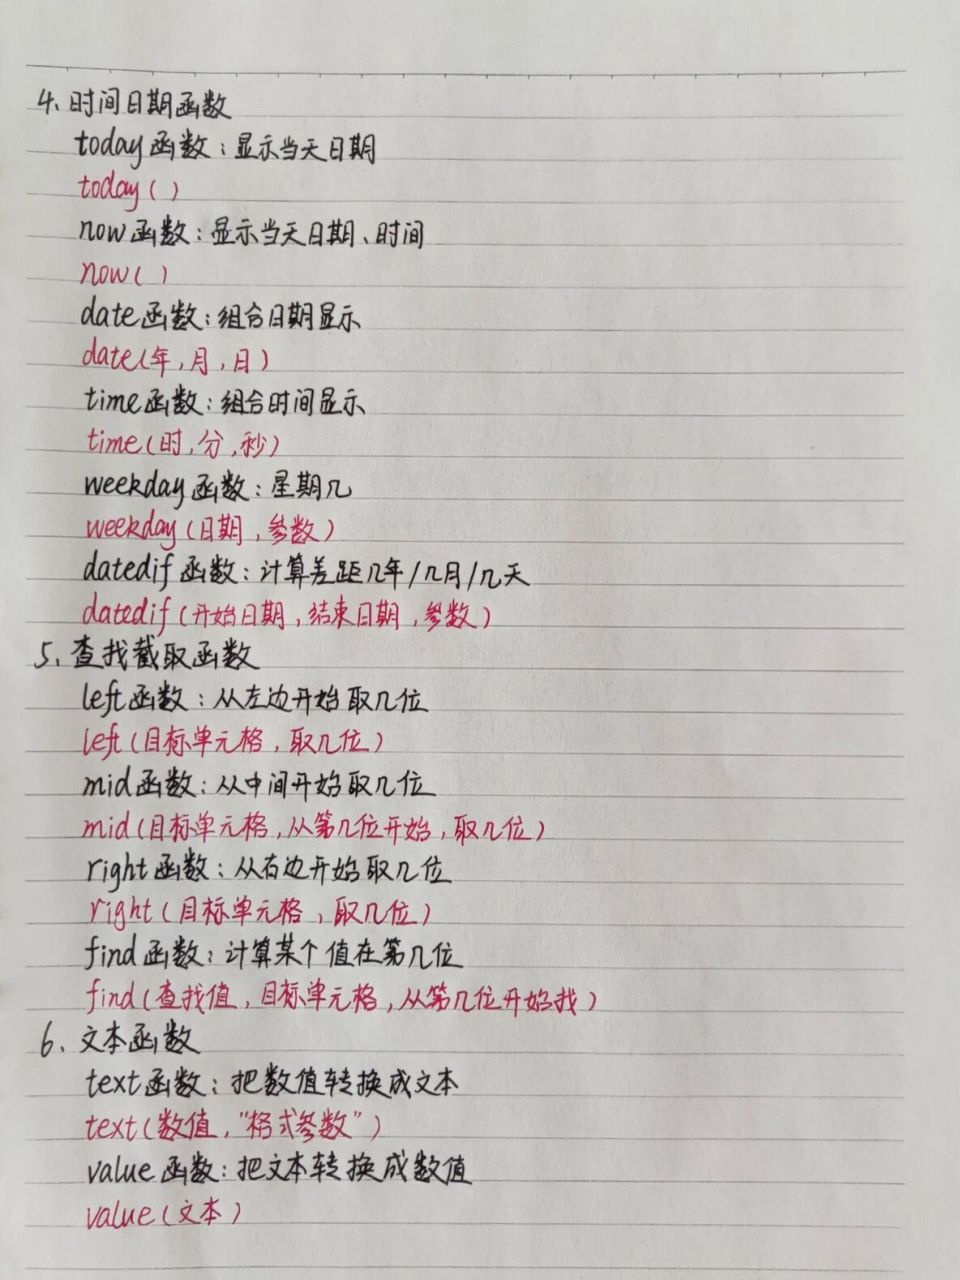 4、时间日期函数
today函数：显示当天日期
today()
now函数：显示当天日期、时间
now()
date函数：组合日期显示
date(年,月,日)
time函数：组合时间显示
time(时,分,秒)
weekday函数：星期几
weekday(日期,参数)
datedif函数：计算差距几年/几月/几天
datedif(开始日期,结束日期,参数)
5、查找截取函数
left函数：从左边开始取几位
left(目标单元格,取几位)
mid函数：从中间开始取几位
mid(目标单元格,从第几位开始,取几位)
right函数：从右边开始取几位
right(目标单元格,取几位)
find函数：计算某个值在第几位
find(查找值,目标单元格,从第几位开始找)
6、文本函数
text函数：把数值转换成文本
text(数值,"格式参数")
value函数：把文本转换成数值
value(文本)